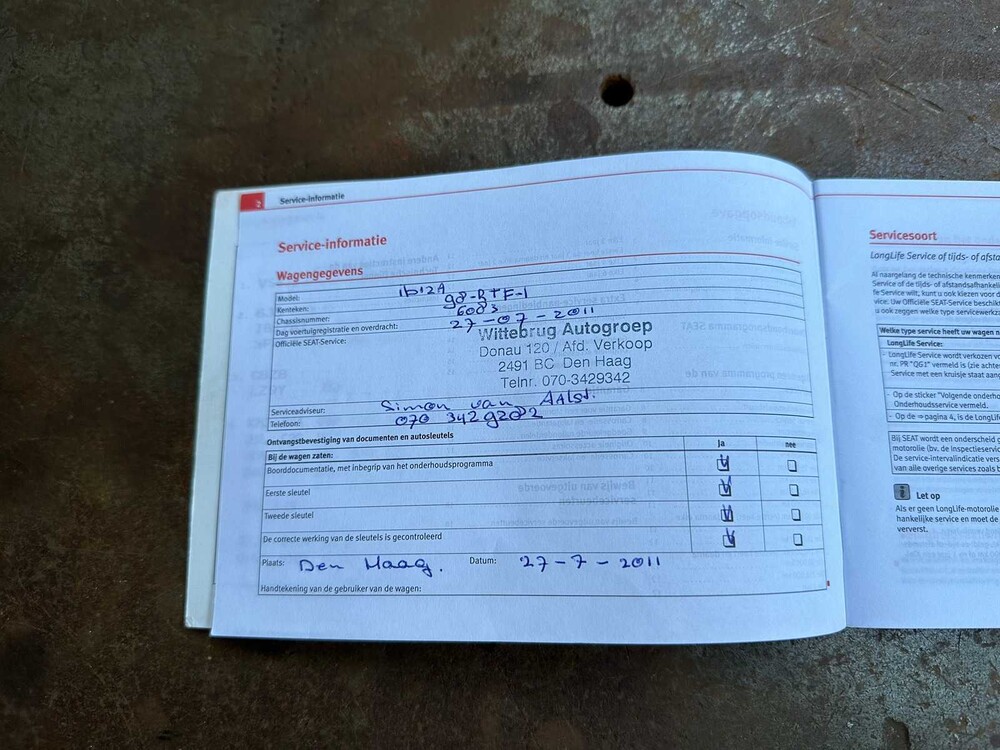 2 Service-informatie
Service-informatie
Wagengegevens
Model: IbIZA
Kenteken: 98-RTF-1
Chassisnummer: 6003
Dag voertuigregistratie en overdracht: 27-07-2011
Officiële SEAT-Service:
Wittebrug Autogroep
Donau 120 / Afd. Verkoop
2491 BC Den Haag
Telnr. 070-3429342
Serviceadviseur: Simon van Aalst.
Telefoon: 070 3429282
Ontvangstbevestiging van documenten en autosleutels
Bij de wagen zaten: Ja nee
Boorddocumentatie, met inbegrip van het onderhoudsprogramma
Eerste sleutel
Tweede sleutel
De correcte werking van de sleutels is gecontroleerd
Plaats: Den Haag. Datum: 27-7-2011
Handtekening van de gebruiker van de wagen:
Servicesoort
LongLife Service of tijds- of afsta
Al naargelang de technische kenmerken
Service of de tijds- of afstandsafhankeli
fe Service wilt, kunt u ook kiezen voor d
vice. Uw Officiële SEAT-Service beschikt
u ook zeggen welke type servicewerkza
Welke type service heeft uw wagen n
LongLife Service:
- LongLife Service wordt verkozen vo
nr. PR "QG1" vermeld is (zie achter
Service met een kruisje staat aang
- Op de sticker "Volgende onderho
Onderhoudsservice vermeld.
- Op de ⇒ pagina 4, is de LongLif
Bij SEAT wordt een onderscheid g
motorolie (bv. de Inspectieservic
De service-intervalindicatie vers
van alle overige services zoals b
Let op
Als er geen LongLife-motorolie
hankelijke service en moet de
ververst.